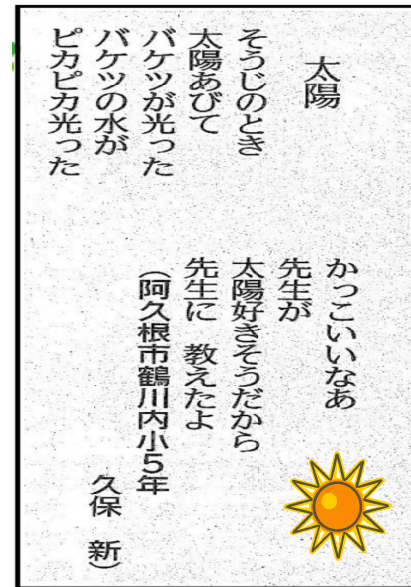 太陽
そうじのとき
太陽あびて
バケツが光った
バケツの水が
ピカピカ光った
かっこいいなあ
先生が
太陽好きそうだから
先生に 教えたよ
(阿久根市鶴川内小5年
久保 新)